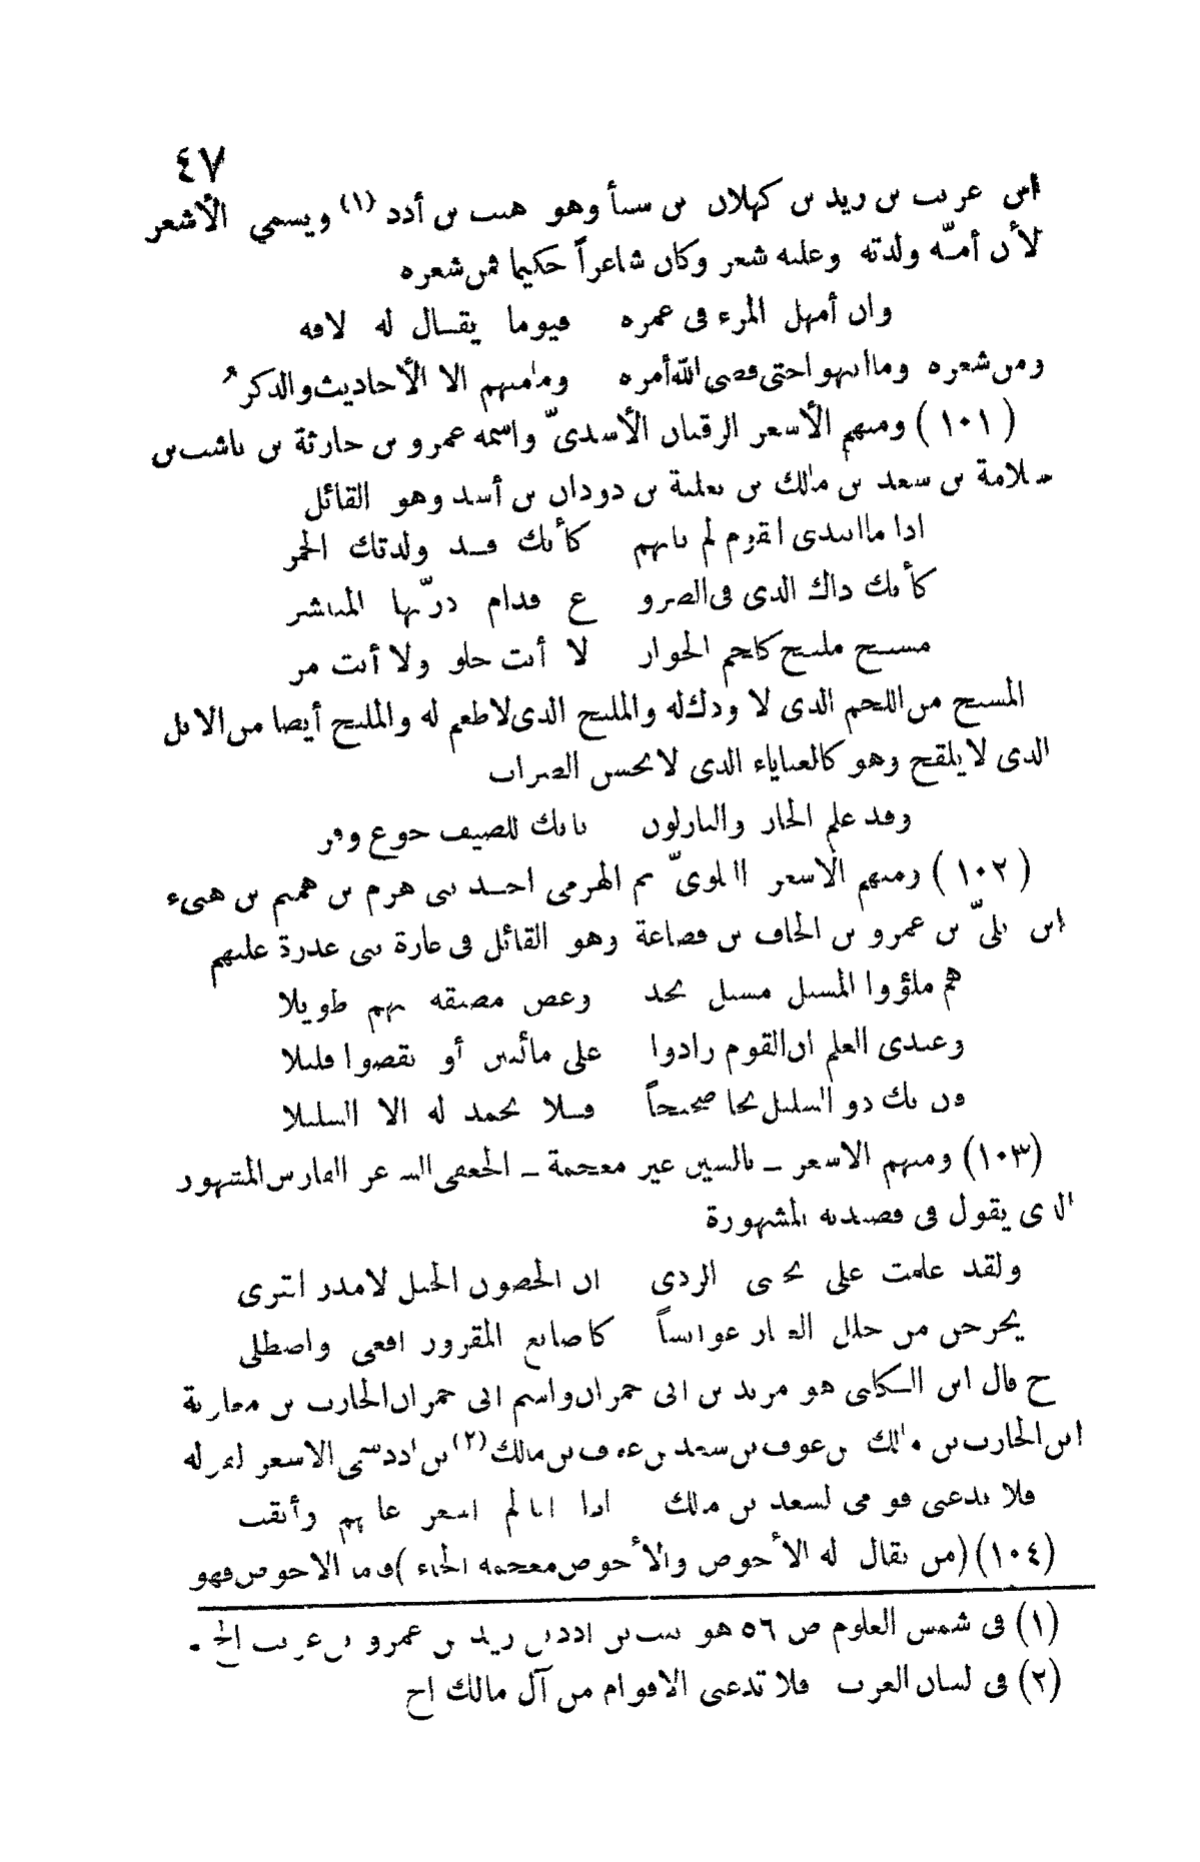 ٤٧
ابن عريب بن زيد بن كهلان بن سبأ وهو نبت بن أدد (١) ويسمى الأشعر
لأن أمّه ولدته وعليه شعر وكان شاعراً حكيما فمن شعره
وان أمهل المرء فى عمره فيوما يقال له لافه
ومن شعره وما انتهوا حتى قضى الله أمره وما منهم الا الأحاديث والذكر
(١٠١) ومنهم الأسعر الرقبان الأسدىّ واسمه عمرو بن حارثة بن ناشب بن
سلامة بن سعد بن مالك بن ثعلبة بن دودان بن أسد وهو القائل
اذا ما انتدى القوم لم تأتهم كأنك قد ولدتك الحمر
كأنك ذاك الذى فى الضرو ع قدام درّتها المنتشر
مسيخ مليخ كلحم الحوار لا أنت حلو ولا أنت مر
المسيخ من اللحم الذى لا ودك له والمليخ الذى لا طعم له والمليخ أيضا من الابل
الذى لا يلقح وهو كالعياياء الذى لا يحسن الضراب
وقد علم الجار والنازلون بأنك للضيف جوع وقر
(١٠٢) ومنهم الاسعر البلوىّ ثم الهرمى احد بنى هرم بن هميم بن هنىء
ابن بلىّ بن عمرو بن الحاف بن قضاعة وهو القائل فى غارة بنى عذرة عليهم
هم ملؤوا المسيل مسيل نجد وغص مضيقه بهم طويلا
وعندى العلم ان القوم زادوا على مائتين أو نقصوا قليلا
فان يك ذو السليل نجا صحيحاً فلا يحمد له الا السليلا
(١٠٣) ومنهم الاسعر ــ بالسين غير معجمة ــ الجعفى الشاعر الفارس المشهور
الذى يقول فى قصيدته المشهورة
ولقد علمت على تجنبى الردى ان الحصون الخيل لا مدر القرى
يخرجن من خلل الغبار عوابساً كأصابع المقرور اقعى واصطلى
ح قال ابن الكلبى هو مرثد بن ابى حمران واسم ابى حمران الحارث بن معاوية
ابن الحارث بن مالك بن عوف بن سعد بن عوف بن مالك (٢) بن ادد سمى الاسعر لقوله
فلا يدعنى قومى لسعد بن مالك اذا انا لم اسعر عليهم وأثقب
(١٠٤) (من يقال له الأحوص والأخوص معجمة الخاء) فأما الاحوص فهو
(١) فى شمس العلوم ص ٥٦ هو نبت بن ادد بن زيد بن عمرو بن عريب الخ .
(٢) فى لسان العرب فلا تدعنى الاقوام من آل مالك اخ